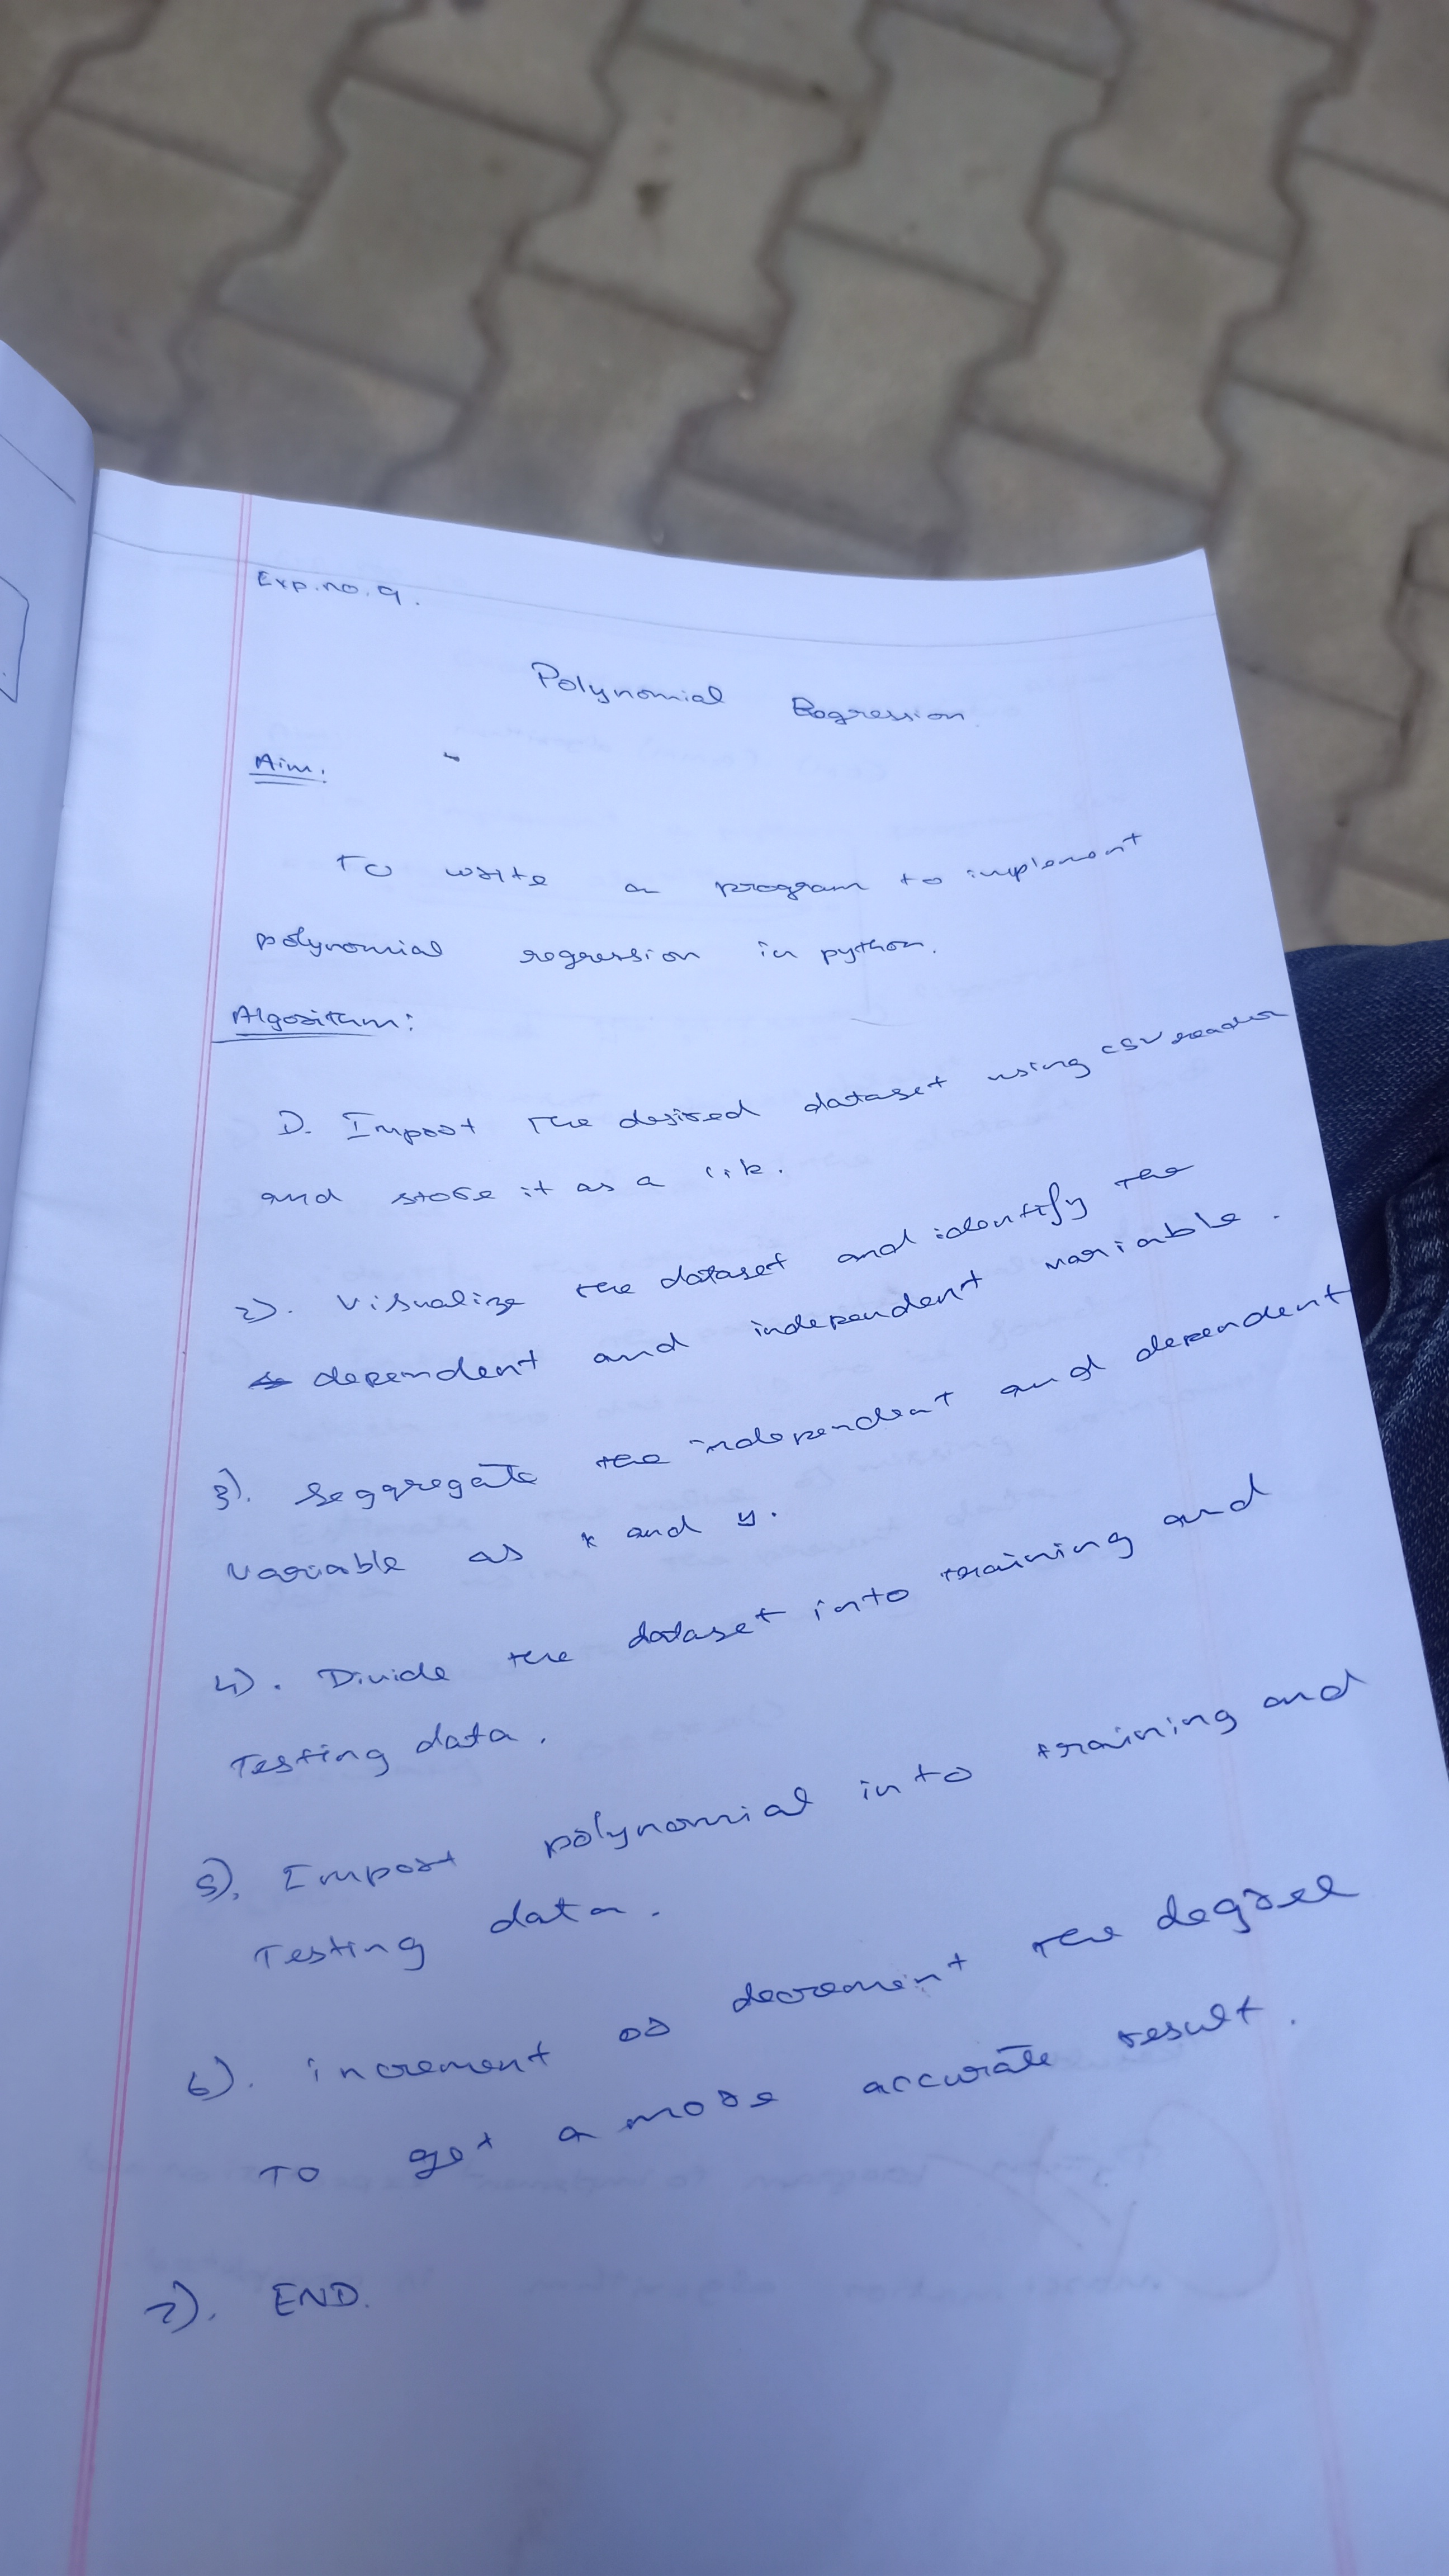 Exp.no.9.
Polynomial Regression
Aim:
To write a program to implement
polynomial regression in python.
Algorithm:
1). Import The desired dataset using csv reader
and store it as a
2). Visualize the dataset and identify the
dependent and independent variable.
3). Seggregate the independent and dependent
variable as x and y.
4). Divide the dataset into training and
Testing data.
5). Import polynomial into training and
Testing data.
6). increment or decrement the degree
To get a more accurate result.
7). END.